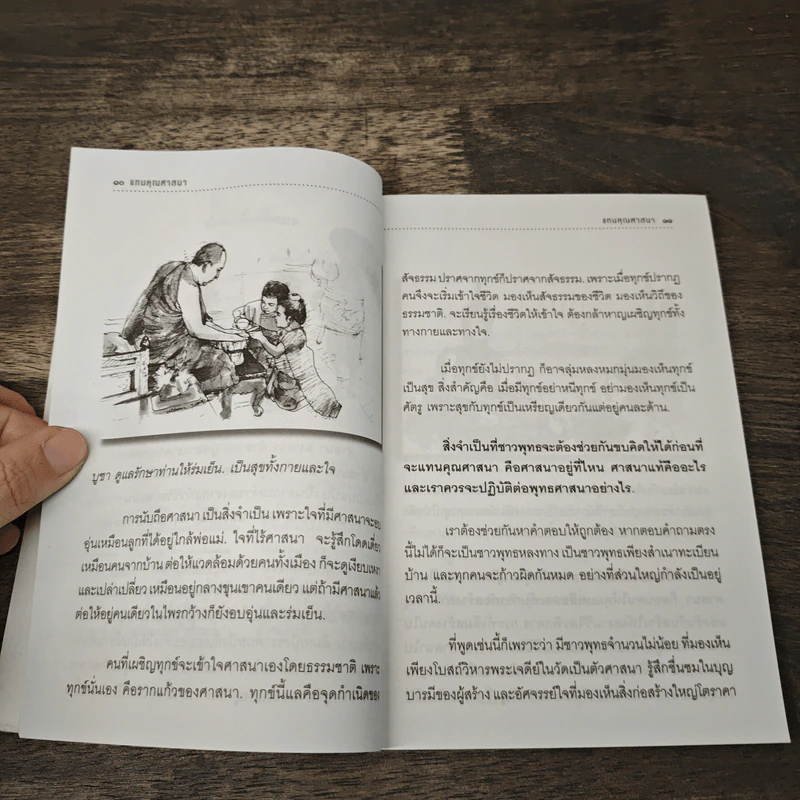 ๑๐ แทนคุณศาสนา
บูชา ดูแลรักษาท่านให้ร่มเย็น. เป็นสุขทั้งกายและใจ
การนับถือศาสนา เป็นสิ่งจำเป็น เพราะใจที่มีศาสนาจะอบ
อุ่นเหมือนลูกที่ได้อยู่ใกล้พ่อแม่. ใจที่ไร้ศาสนา จะรู้สึกโดดเดี่ยว
เหมือนคนจากบ้าน ต่อให้แวดล้อมด้วยคนทั้งเมือง ก็จะดูเงียบเหงา
และเปล่าเปลี่ยว เหมือนอยู่กลางขุนเขาคนเดียว แต่ถ้ามีศาสนาแล้ว
ต่อให้อยู่คนเดียวในไพรกว้างก็ยังอบอุ่นและร่มเย็น.
คนที่เผชิญทุกข์จะเข้าใจศาสนาเองโดยธรรมชาติ เพราะ
ทุกข์นั่นเอง คือรากแก้วของศาสนา. ทุกข์นี้แลคือจุดกำเนิดของ
แทนคุณศาสนา ๑๑
สัจธรรม ปราศจากทุกข์ก็ปราศจากสัจธรรม. เพราะเมื่อทุกข์ปรากฏ
คนจึงจะเริ่มเข้าใจชีวิต มองเห็นสัจธรรมของชีวิต มองเห็นวิถีของ
ธรรมชาติ. จะเรียนรู้เรื่องชีวิตให้เข้าใจ ต้องกล้าหาญเผชิญทุกข์ทั้ง
ทางกายและทางใจ.
เมื่อทุกข์ยังไม่ปรากฏ ก็อาจลุ่มหลงหมกมุ่นมองเห็นทุกข์
เป็นสุข สิ่งสำคัญคือ เมื่อมีทุกข์อย่าหนีทุกข์ อย่ามองเห็นทุกข์เป็น
ศัตรู เพราะสุขกับทุกข์เป็นเหรียญเดียวกันแต่อยู่คนละด้าน.
สิ่งจำเป็นที่ชาวพุทธจะต้องช่วยกันขบคิดให้ได้ก่อนที่
จะแทนคุณศาสนา คือศาสนาอยู่ที่ไหน ศาสนาแท้คืออะไร
และเราควรจะปฏิบัติต่อพุทธศาสนาอย่างไร.
เราต้องช่วยกันหาคำตอบให้ถูกต้อง หากตอบคำถามตรง
นี้ไม่ได้ก็จะเป็นชาวพุทธหลงทาง เป็นชาวพุทธเพียงสำเนาทะเบียน
บ้าน และทุกคนจะก้าวผิดกันหมด อย่างที่ส่วนใหญ่กำลังเป็นอยู่
เวลานี้.
ที่พูดเช่นนี้ก็เพราะว่า มีชาวพุทธจำนวนไม่น้อย ที่มองเห็น
เพียงโบสถ์วิหารพระเจดีย์ในวัดเป็นตัวศาสนา รู้สึกชื่นชมในบุญ
บารมีของผู้สร้าง และอัศจรรย์ใจที่มองเห็นสิ่งก่อสร้างใหญ่โตราคา